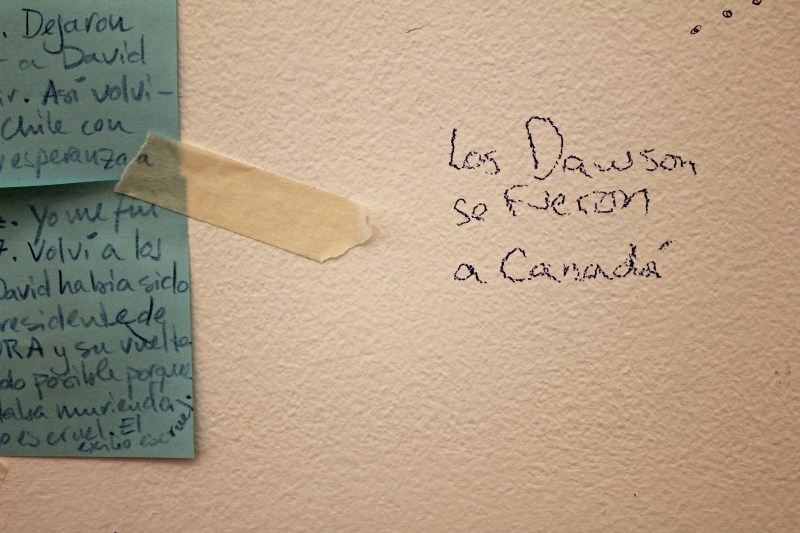 . Dejaron
a David
ir. Así volvi-
Chile con
y esperanza a
. Yo me fui
7. Volví a los
David había sido
residente de
ORA y su vuelta
posible porque
muriendo.
o es cruel. El
exilio es cruel.
Los Dawson
se fueron
a Canadá